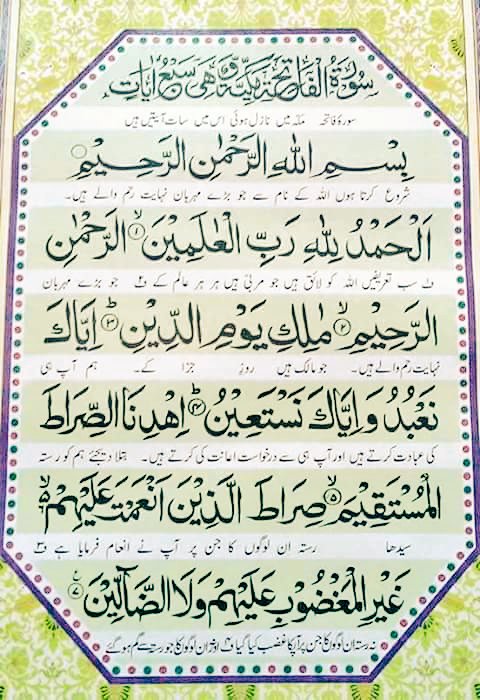 سُوْرَۃُ الْفَاتِحَۃِ مَکِّیَّۃٌ وَّهِیَ سَبْعُ اٰیَاتٍ
سورۂ فاتحہ مکہ میں نازل ہوئی اس میں سات آیتیں ہیں
بِسْمِ اللهِ الرَّحْمٰنِ الرَّحِیْمِ
شروع کرتا ہوں اللہ کے نام سے جو بڑے مہربان نہایت رحم والے ہیں۔
اَلْحَمْدُ لِلّٰهِ رَبِّ الْعٰلَمِیْنَ ۙ﴿۱﴾ الرَّحْمٰنِ
ف۱ سب تعریفیں اللہ کو لائق ہیں جو مربی ہیں ہر ہر عالم کے ف۲ جو بڑے مہربان
الرَّحِیْمِ ۙ﴿۲﴾ مٰلِكِ یَوْمِ الدِّیْنِ ؕ﴿۳﴾ اِیَّاكَ
نہایت رحم والے ہیں۔ جو مالک ہیں روزِ جزا کے۔ ہم آپ ہی
نَعْبُدُ وَ اِیَّاكَ نَسْتَعِیْنُ ؕ﴿۴﴾ اِهْدِنَا الصِّرَاطَ
کی عبادت کرتے ہیں اور آپ ہی سے درخواست اعانت کی کرتے ہیں۔ بتلا دیجئے ہم کو رستہ
الْمُسْتَقِیْمَ ۙ﴿۵﴾ صِرَاطَ الَّذِیْنَ اَنْعَمْتَ عَلَیْهِمْ ۙ﴿۶﴾
سیدھا رستہ ان لوگوں کا جن پر آپ نے انعام فرمایا ہے ف۳
غَیْرِ الْمَغْضُوْبِ عَلَیْهِمْ وَلَا الضَّآلِّیْنَ ﴿۷﴾
نہ رستہ ان لوگوں کا جن پر آپکا غضب کیا گیا ف۴ اور نہ ان لوگوں کا جو رستہ سے گم ہو گئے